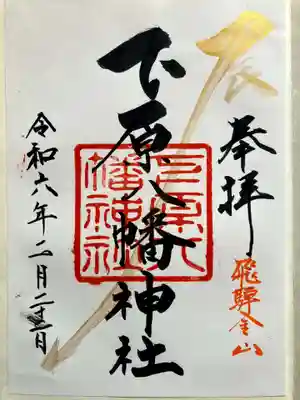 辰
奉拝
飛騨金山
下原八幡神社
下原八
幡神社
令和六年二月二十三日